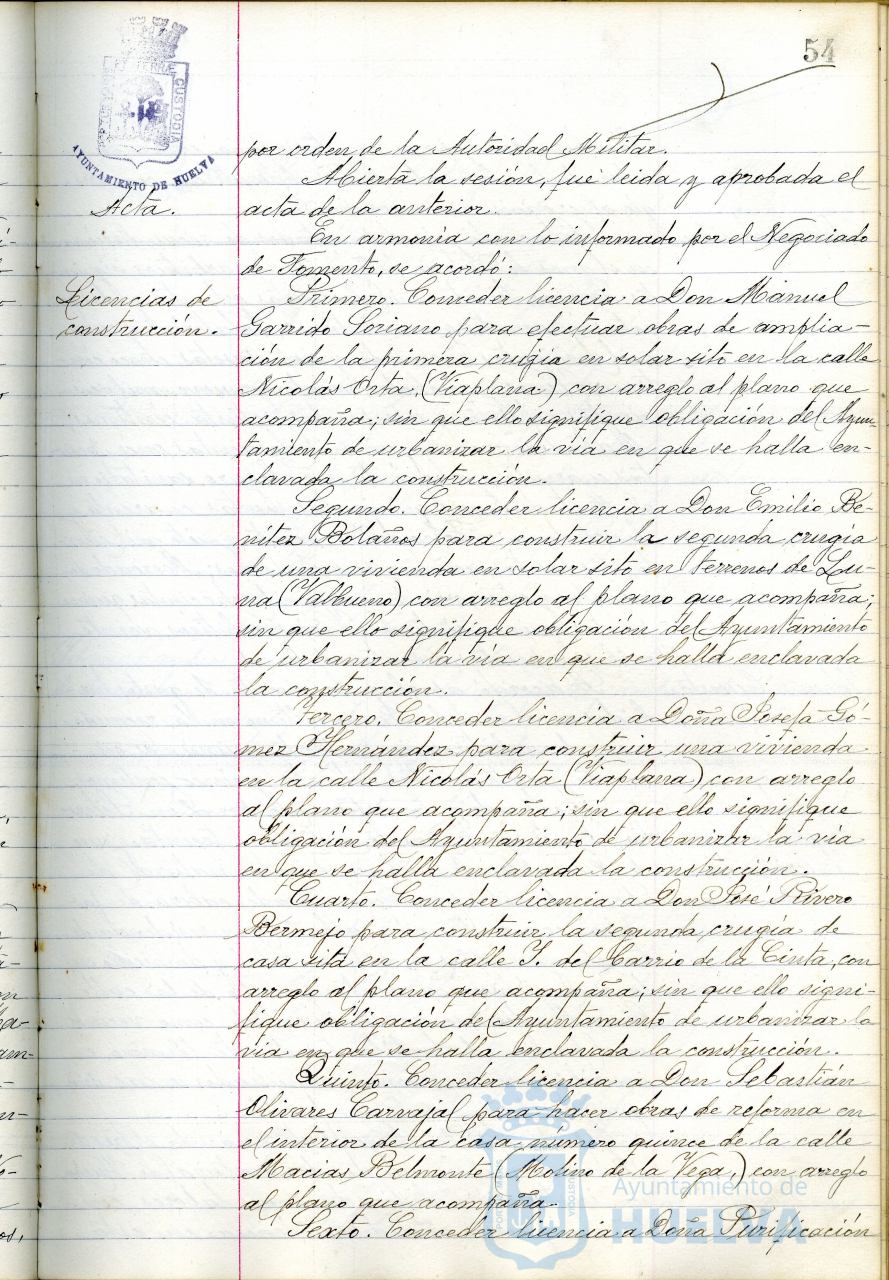 54
PORTUS MARIS ET TERRÆ CUSTODIA
AYUNTAMIENTO DE HUELVA
por orden de la Autoridad Militar.
Abierta la sesión, fué leida y aprobada el
Acta.
acta de la anterior.
En armonia con lo informado por el Negociado
de Fomento, se acordó:
Licencias de
construcción.
Primero. Conceder licencia a Don Manuel
Garrido Soriano para efectuar obras de amplia-
ción de la primera crugía en solar sito en la calle
Nicolás Orta, (Viaplana) con arreglo al plano que
acompaña; sin que ello signifique obligación del Ayun-
tamiento de urbanizar la vía en que se halla en-
clavada la construcción.
Segundo. Conceder licencia a Don Emilio Be-
nítez Bolaños para construir la segunda crugía
de una vivienda en solar sito en terrenos de Lu-
na (Valbueno) con arreglo al plano que acompaña;
sin que ello signifique obligación del Ayuntamiento
de urbanizar la vía en que se halla enclavada
la construcción.
Tercero. Conceder licencia a Doña Josefa Gó-
mez Hernández para construir una vivienda
en la calle Nicolás Orta (Viaplana) con arreglo
al plano que acompaña; sin que ello signifique
obligación del Ayuntamiento de urbanizar la vía
en que se halla enclavada la construcción.
Cuarto. Conceder licencia a Don José Rivero
Bermejo para construir la segunda crugía de
casa sita en la calle Y. del Barrio de la Cinta, con
arreglo al plano que acompaña; sin que ello signi-
fique obligación del Ayuntamiento de urbanizar la
via en que se halla enclavada la construcción.
Quinto. Conceder licencia a Don Sebastián
Olivares Carvajal para hacer obras de reforma en
el interior de la casa número quince de la calle
Macias Belmonte (Molino de la Vega,) con arreglo
al plano que acompaña.
Sexto. Conceder licencia a Doña Purificación
Ayuntamiento de
HUELVA